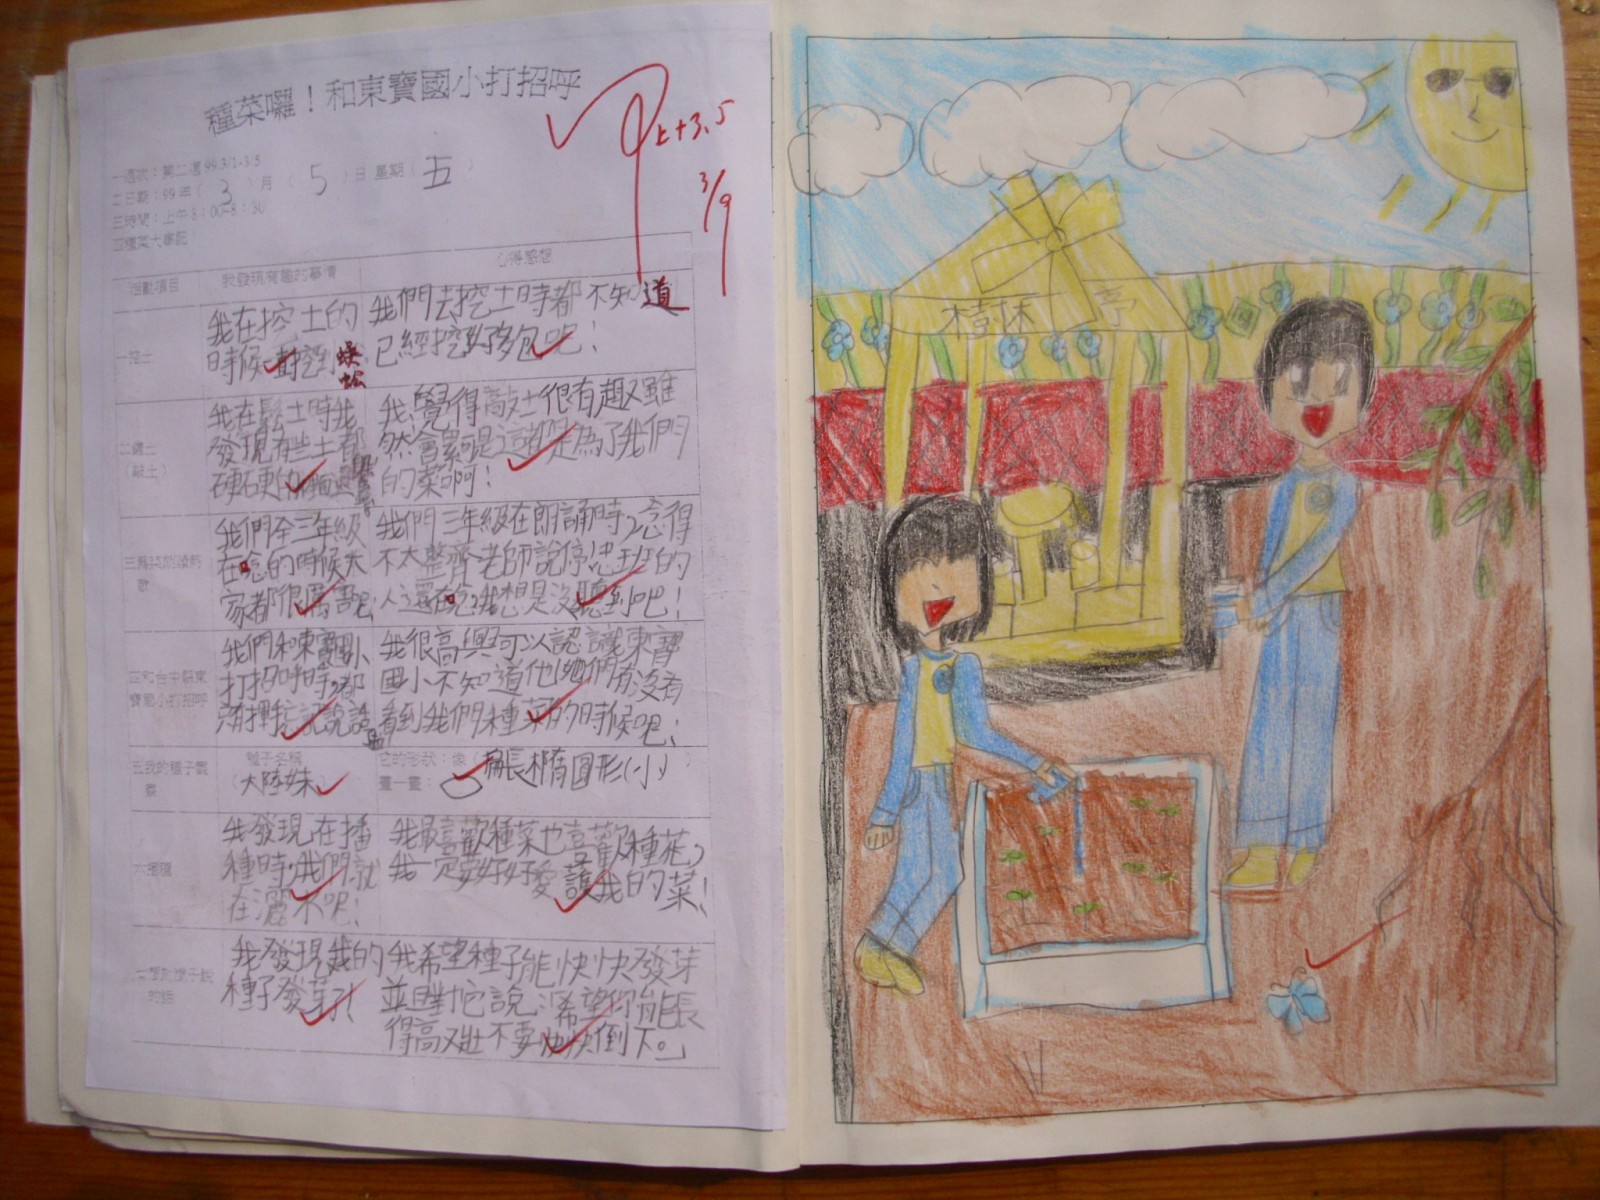 種菜囉！和東寶國小打招呼
一週次：第二週 99.3/1-3/5
二日期：99年（3）月（5）日星期（五）
三時間：上午8：00-8：30
四種菜大事記
甲上+3.5
3/9
活動項目
我發現有趣的事情
心得感想
一挖土
我在挖土的
時候一直挖到蜈
蚣
我們去挖土時都不知道
已經挖好多包呢！
二鬆土
（敲土）
我在鬆土時我
發現有些土都
硬硬的
我覺得敲土很有趣雖
然會累可是這都是為了我們
的菜啊！
歌
我們全三年級
在唸的時候大
家都很
我們三年級在朗誦時，念得
不太整齊老師說停忠班的
人還在唸我想是沒聽到吧！
四和台中縣東
寶國小打招呼
我們和東寶國小
打招呼時，都
我很高興可以認識東寶
國小不知道他她們有沒有
看到我們種菜的時候呢！
五我的種子觀
察
種子名稱
（大陸妹）
它的形狀：像（扁長橢圓形(小)）
畫一畫：
六播種
我發現在播
種時，我們就
在灑水呢！
我最喜歡種菜也喜歡種花，
我一定要好好愛護我的菜！
的話
我發現我的
種子發芽了
我希望種子能快快發芽
並且對它說：希望你能長
得高又壯不要快快倒下。」
桂林亭